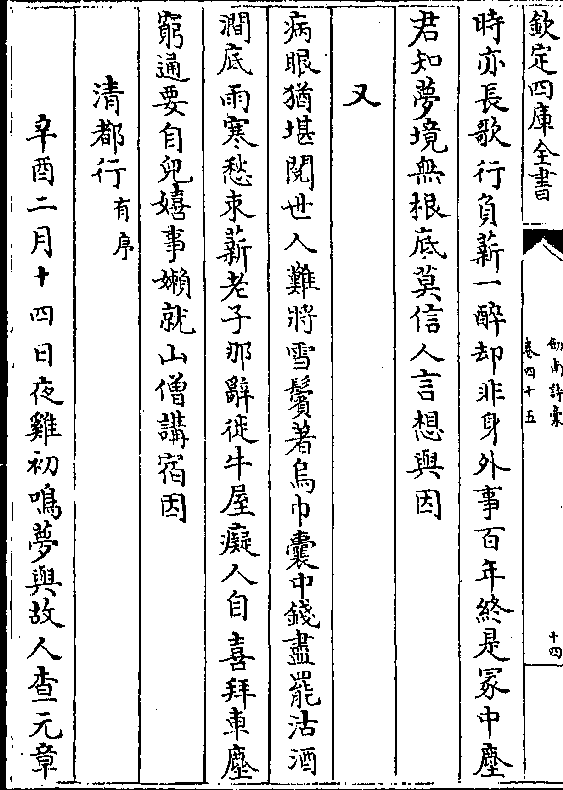 欽定四庫全書
劍南詩稾
卷四十五
十四
時亦長歌行負薪一醉却非身外事百年終是冢中塵
君知夢境無根底莫信人言想與因
又
病眼猶堪閱世人難將雪鬢著烏巾囊中錢盡罷沽酒
澗底雨寒愁束薪老子那辭徙牛屋癡人自喜拜車塵
窮通要自兒嬉事嬾就山僧講宿因
清都行有序
辛酉二月十四日夜雞初鳴夢與故人查元章